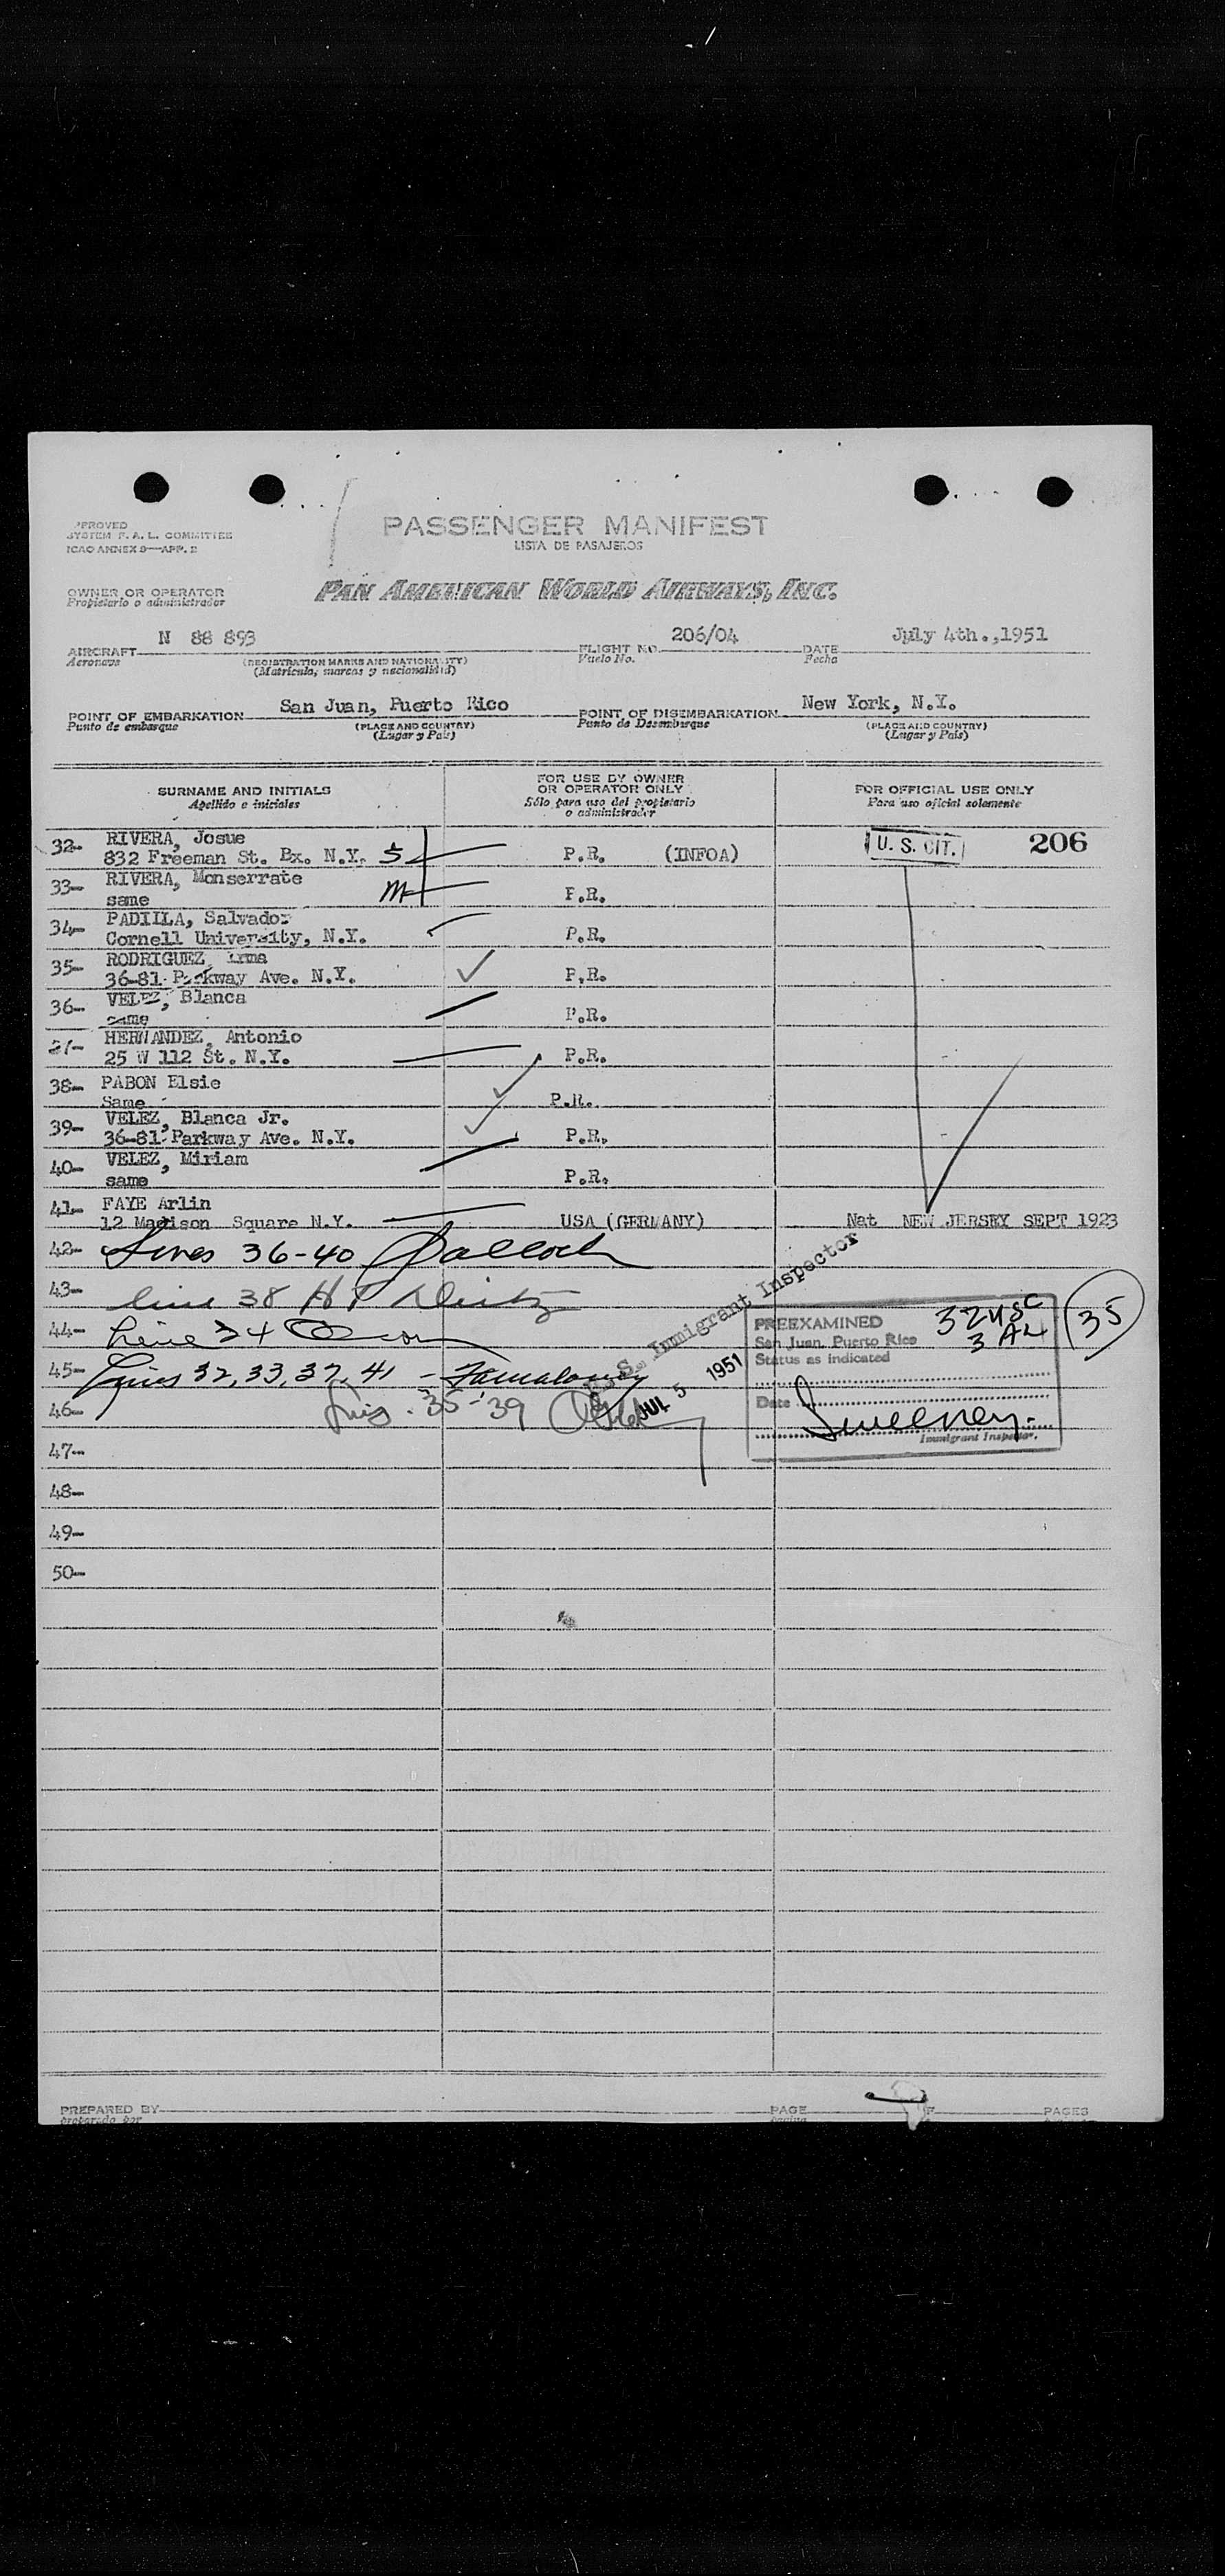 PASSENGER MANIFEST
LISTA DE PASAJEROS
SYSTEM F. A. L. COMMITTEE
ICAO ANNEX 9—APP. E
OWNER OR OPERATOR
Propietario o administrador
PAN AMERICAN WORLD AIRWAYS, INC.
AIRCRAFT N 88 893
Aeronave
(REGISTRATION MARKS AND NATIONALITY)
(Matricula, marcas y nacionalidad)
FLIGHT NO. 206/04
Vuelo No.
DATE July 4th.,1951
Fecha
POINT OF EMBARKATION San Juan, Puerto Rico
Punto de embarque
(PLACE AND COUNTRY)
(Lugar y País)
POINT OF DISEMBARKATION New York, N.Y.
Punto de Desembarque
(PLACE AND COUNTRY)
(Lugar y País)
SURNAME AND INITIALS
Apellido e iniciales
FOR USE BY OWNER
OR OPERATOR ONLY
Sólo para uso del propietario
o administrador
FOR OFFICIAL USE ONLY
Para uso oficial solamente
32- RIVERA, Josue
832 Freeman St. Bx. N.Y. 5 P.R. (INFOA) U. S. CIT. 206
33- RIVERA, Monserrate
same M P.R.
34- PADILLA, Salvador
Cornell University, N.Y. P.R.
35- RODRIGUEZ, Irma
36-81 Parkway Ave. N.Y. P.R.
36- VELEZ, Blanca
same P.R.
37- HERNANDEZ, Antonio
25 W 112 St. N.Y. P.R.
38- PABON Elsie
Same P.R.
39- VELEZ, Blanca Jr.
36-81 Parkway Ave. N.Y. P.R.
40- VELEZ, Miriam
same P.R.
41- FAYE Arlin
12 Madison Square N.Y. USA (GERMANY) Nat NEW JERSEY SEPT 1923
42- Lines 36-40
43- line 38
44- Line 34
45- Lines 32, 33, 37, 41 -
46- Lines 35-39
47-
48-
49-
50-
U. S. Immigrant Inspector
JUL 5 1951
PREEXAMINED
San Juan, Puerto Rico
Status as indicated
32 USC
3 AL
35
Date
Sweeney
Immigrant Inspector.
PREPARED BY
preparado por
PAGE
PAGES